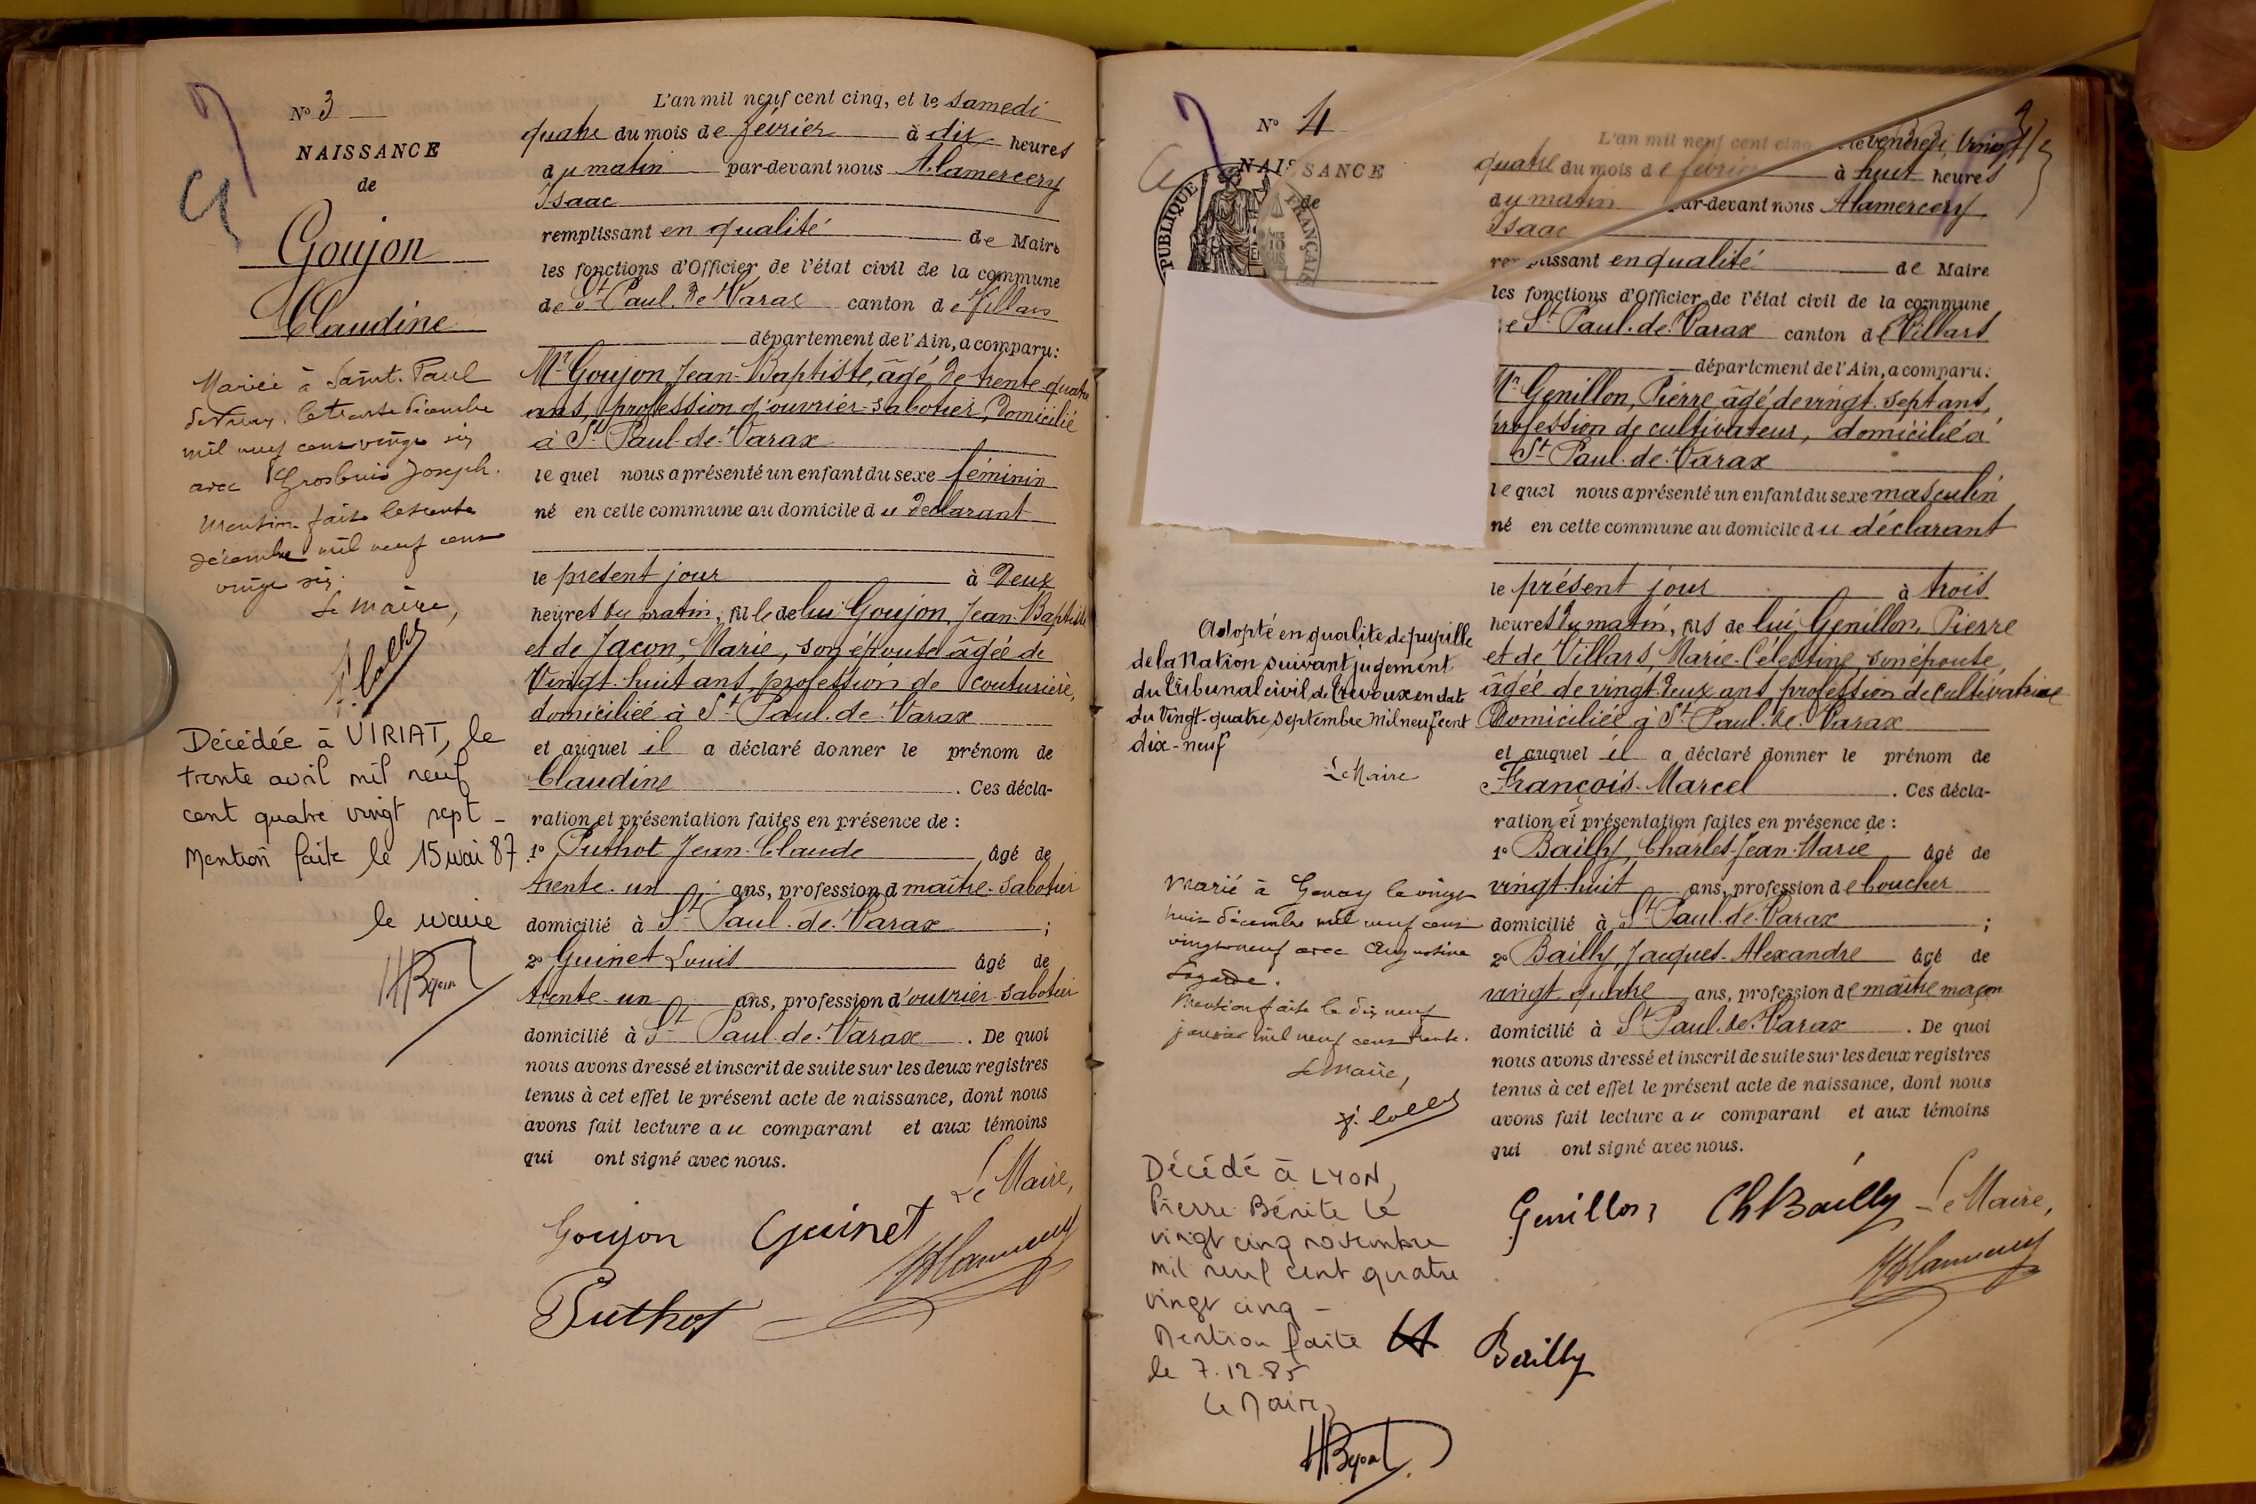 Nº 3
NAISSANCE
de
Goujon
Claudine
Mariée à Saint-Paul
de Varax, le trente décembre
mil neuf cent vingt six
avec Grosbuis Joseph.
Mention faite le trente
décembre mil neuf cent
vingt six.
Le Maire,
Décédée à VIRIAT, le
trente avril mil neuf
cent quatre vingt sept -
Mention faite le 15 mai 87
le maire
L'an mil neuf cent cinq, et le samedi
quatre du mois de février à dix heures
du matin par-devant nous Alamercery
Isaac
remplissant en qualité de Maire
les fonctions d'Officier de l'état civil de la commune
de St Paul. de Varax canton de Villars
département de l'Ain, a comparu:
Mr Goujon, Jean-Baptiste, âgé de trente-quatre
ans, profession d'ouvrier-sabotier, domicilié
à St Paul-de-Varax
le quel nous a présenté un enfant du sexe féminin
né en cette commune au domicile du déclarant
le présent jour à deux
heures du matin, fille de lui Goujon, Jean-Baptiste
et de Jacon, Marie, son épouse âgée de
Vingt-huit ans, profession de couturière,
domiciliée à St Paul-de-Varax
et auquel il a déclaré donner le prénom de
Claudine . Ces décla-
ration et présentation faites en présence de :
1º Puthot Jean-Claude âgé de
trente-un ans, profession d maître-sabotier
domicilié à St Paul-de-Varax ;
2º Guinet Louis âgé de
trente-un ans, profession d'ouvrier-sabotier
domicilié à St Paul-de-Varax . De quoi
nous avons dressé et inscrit de suite sur les deux registres
tenus à cet effet le présent acte de naissance, dont nous
avons fait lecture au comparant et aux témoins
qui ont signé avec nous.
Le Maire,
Goujon Guinet
Puthot
Nº 4
NAISSANCE
de
PUBLIQUE FRANÇAISE
Adopté en qualité de pupille
de la Nation suivant jugement
du Tribunal civil de Trevoux en date
du Vingt-quatre septembre mil neuf cent
dix-neuf
Le Maire
Marié à Genay le vingt
huit décembre mil neuf cent
vingt-neuf avec Augustine
Mention faite le dix neuf
janvier mil neuf cent trente.
Le Maire,
Décédé à LYON,
Pierre Bénite le
vingt cinq novembre
mil neuf cent quatre
vingt cinq -
Mention faite
le 7.12.85
Le Maire,
L'an mil neuf cent cinq le vendredi, Vingt
quatre du mois de février à huit heures
du matin par-devant nous Alamercery
Isaac
remplissant en qualité de Maire
les fonctions d'Officier de l'état civil de la commune
e St Paul-de-Varax canton de Villars
département de l'Ain, a comparu:
Mr Genillon, Pierre âgé de vingt-sept ans,
profession de cultivateur, domicilié à
St Paul-de-Varax
le quel nous a présenté un enfant du sexe masculin
né en cette commune au domicile du déclarant
le présent jour à trois
heures du matin, fils de lui Genillon, Pierre
et de Villars, Marie-Célestine, son épouse,
âgée de vingt-deux ans, profession de cultivatrice
Domiciliée à St Paul-de-Varax
et auquel il a déclaré donner le prénom de
François-Marcel . Ces décla-
ration et présentation faites en présence de :
1º Bailly, Charles-Jean-Marie âgé de
vingt-huit ans, profession de boucher
domicilié à St Paul-de-Varax ;
2º Bailly, Jacques-Alexandre âgé de
vingt-quatre ans, profession de maître maçon
domicilié à St Paul-de-Varax . De quoi
nous avons dressé et inscrit de suite sur les deux registres
tenus à cet effet le présent acte de naissance, dont nous
avons fait lecture au comparant et aux témoins
qui ont signé avec nous.
Genillon Ch Bailly Le Maire,
Bailly